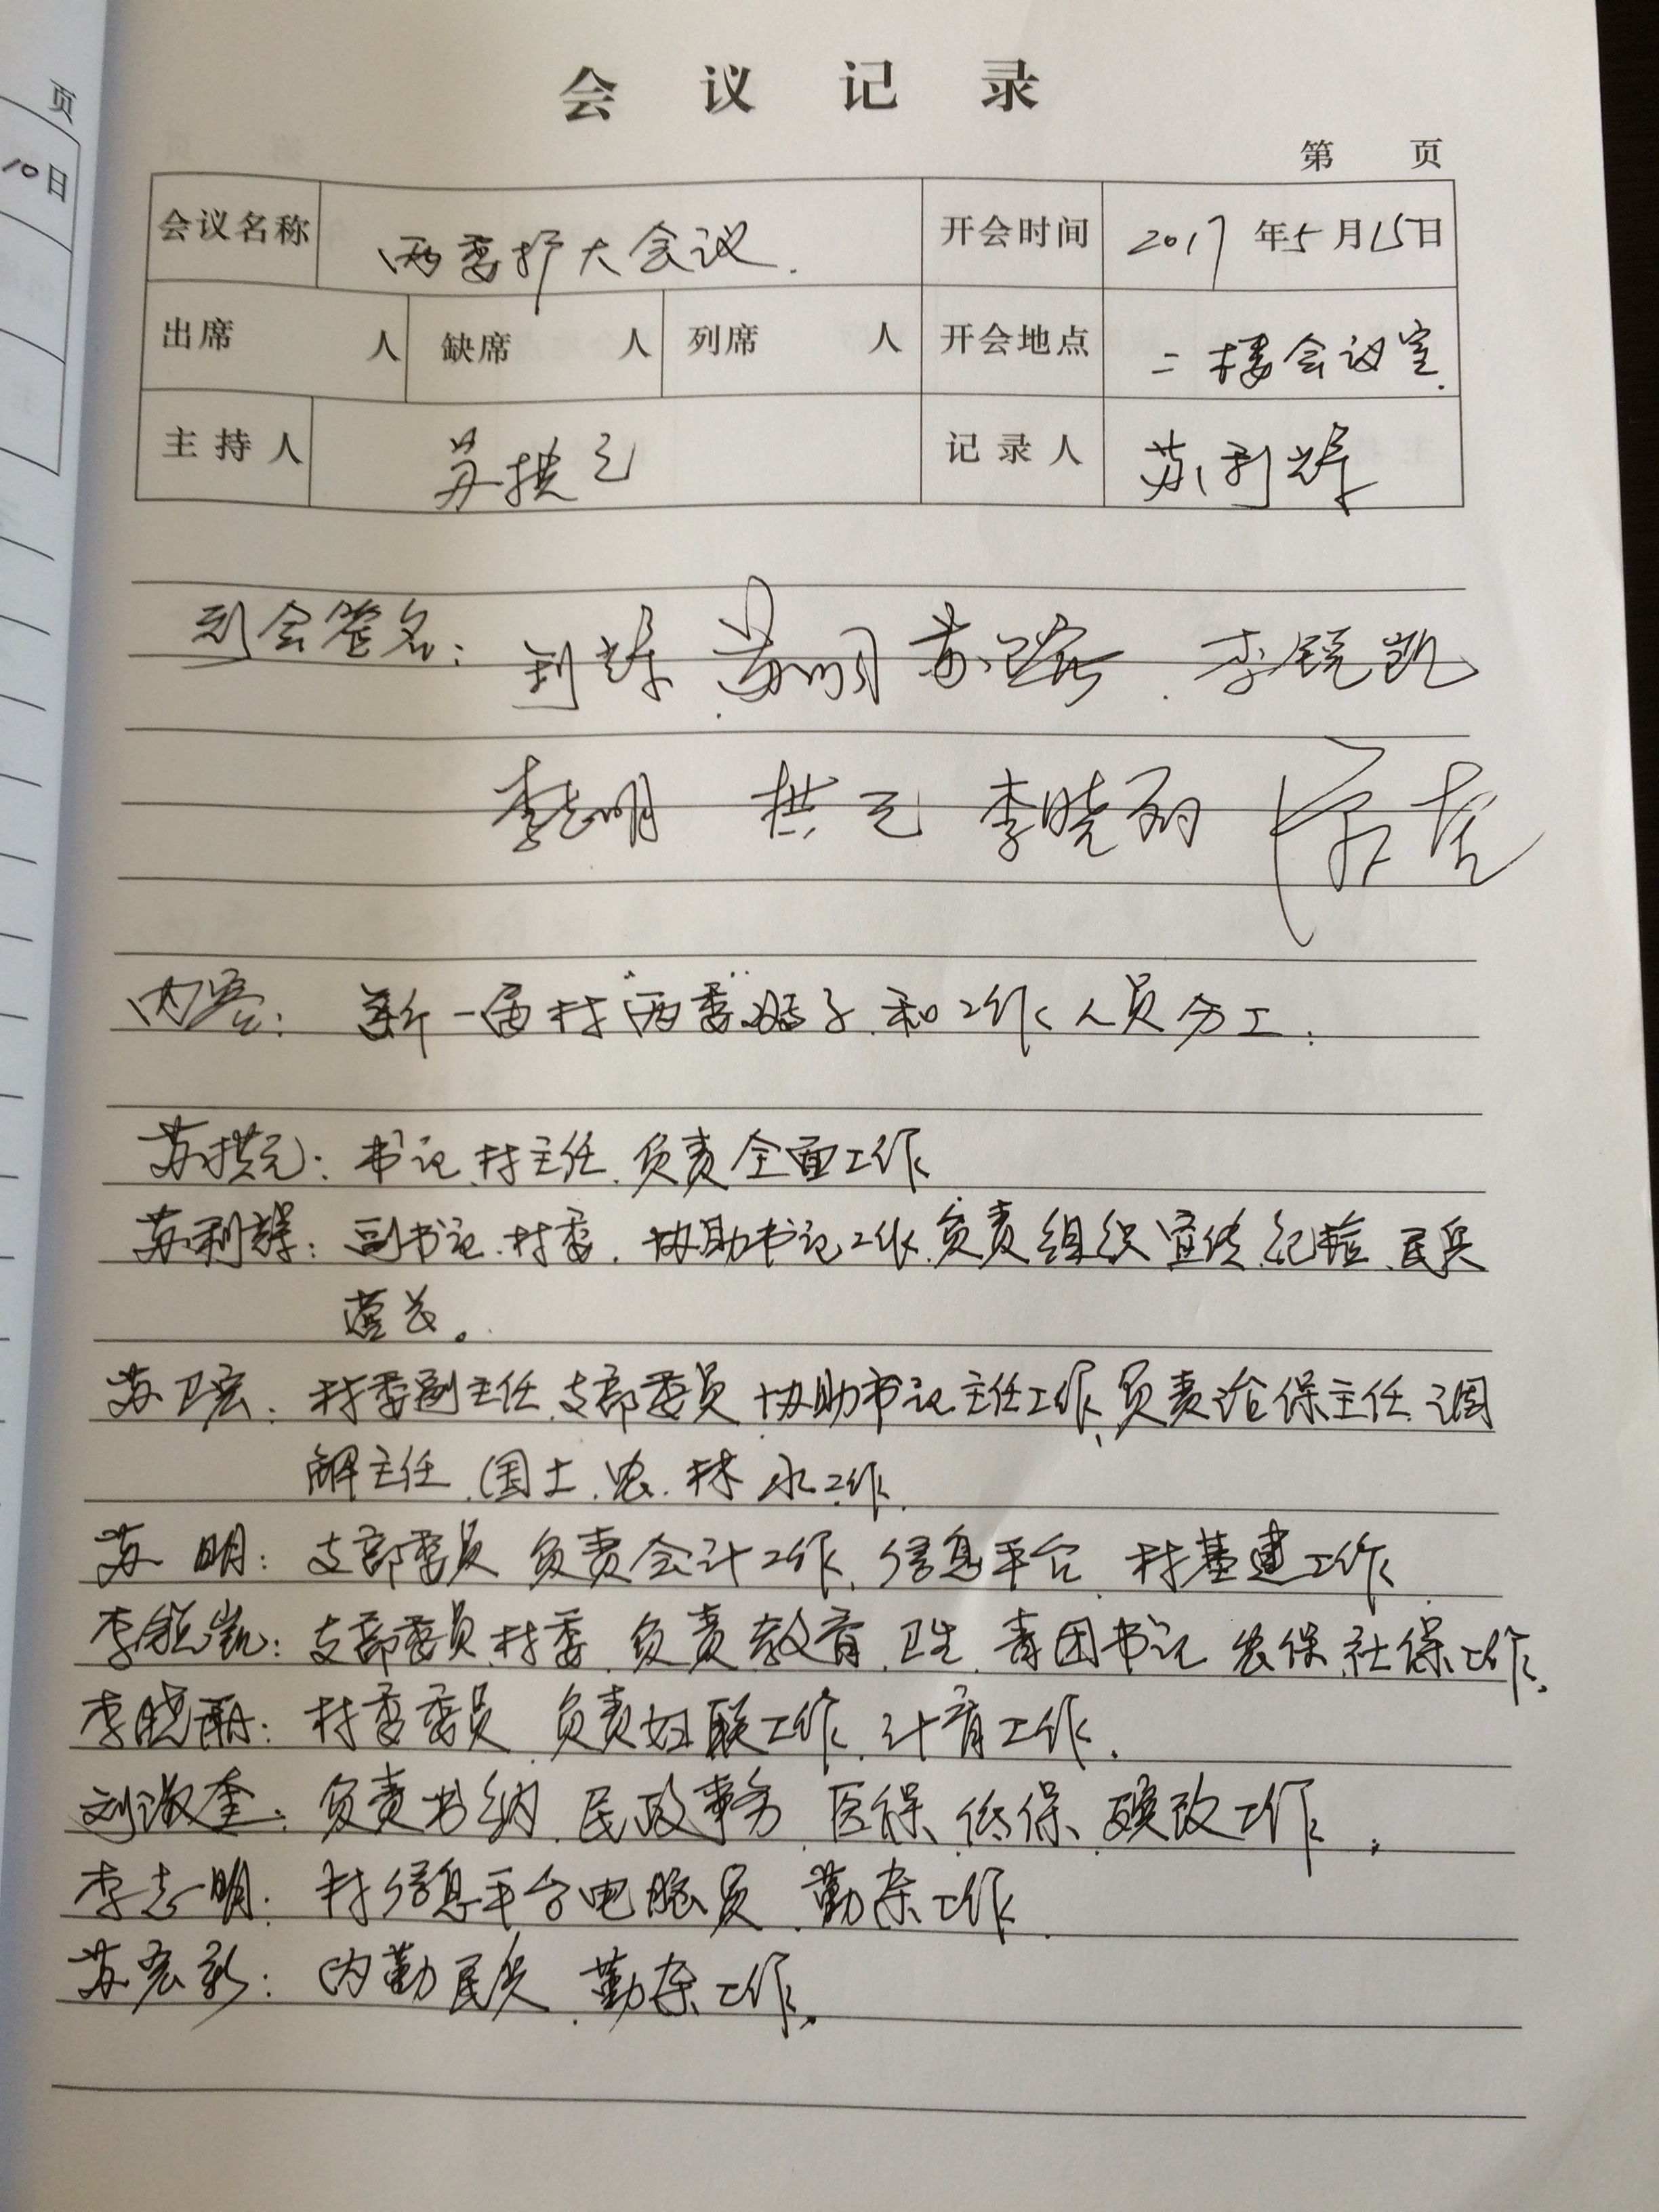 页
10日
会议记录
第 页
会议名称 两委扩大会议. 开会时间 2017年5月15日
出席 人 缺席 人 列席 人 开会地点 二楼会议室.
主持人 苏拱元 记录人 苏利辉
到会签名: 利辉 苏明 苏 李锐凯
李志明 拱元 李晓丽
内容: 新一届村"两委"班子和工作人员分工:
苏拱元: 书记、村主任、负责全面工作
苏利辉: 副书记、村委、协助书记工作、负责组织、宣传、纪检、民兵
营长。
苏卫宏: 村委副主任、支部委员、协助书记主任工作、负责治保主任、调
解主任、国土、农、林、水工作.
苏明: 支部委员、负责会计工作、信息平台、村基建工作
李锐凯: 支部委员、村委、负责教育、卫生、青团书记、农保、社保工作.
李晓丽: 村委委员、负责妇联工作、计育工作.
刘淑奎: 负责出纳、民政事务、医保、低保、殡改工作.
李志明: 村信息平台电脑员、勤杂工作.
苏宏新: 内勤民兵、勤杂工作.